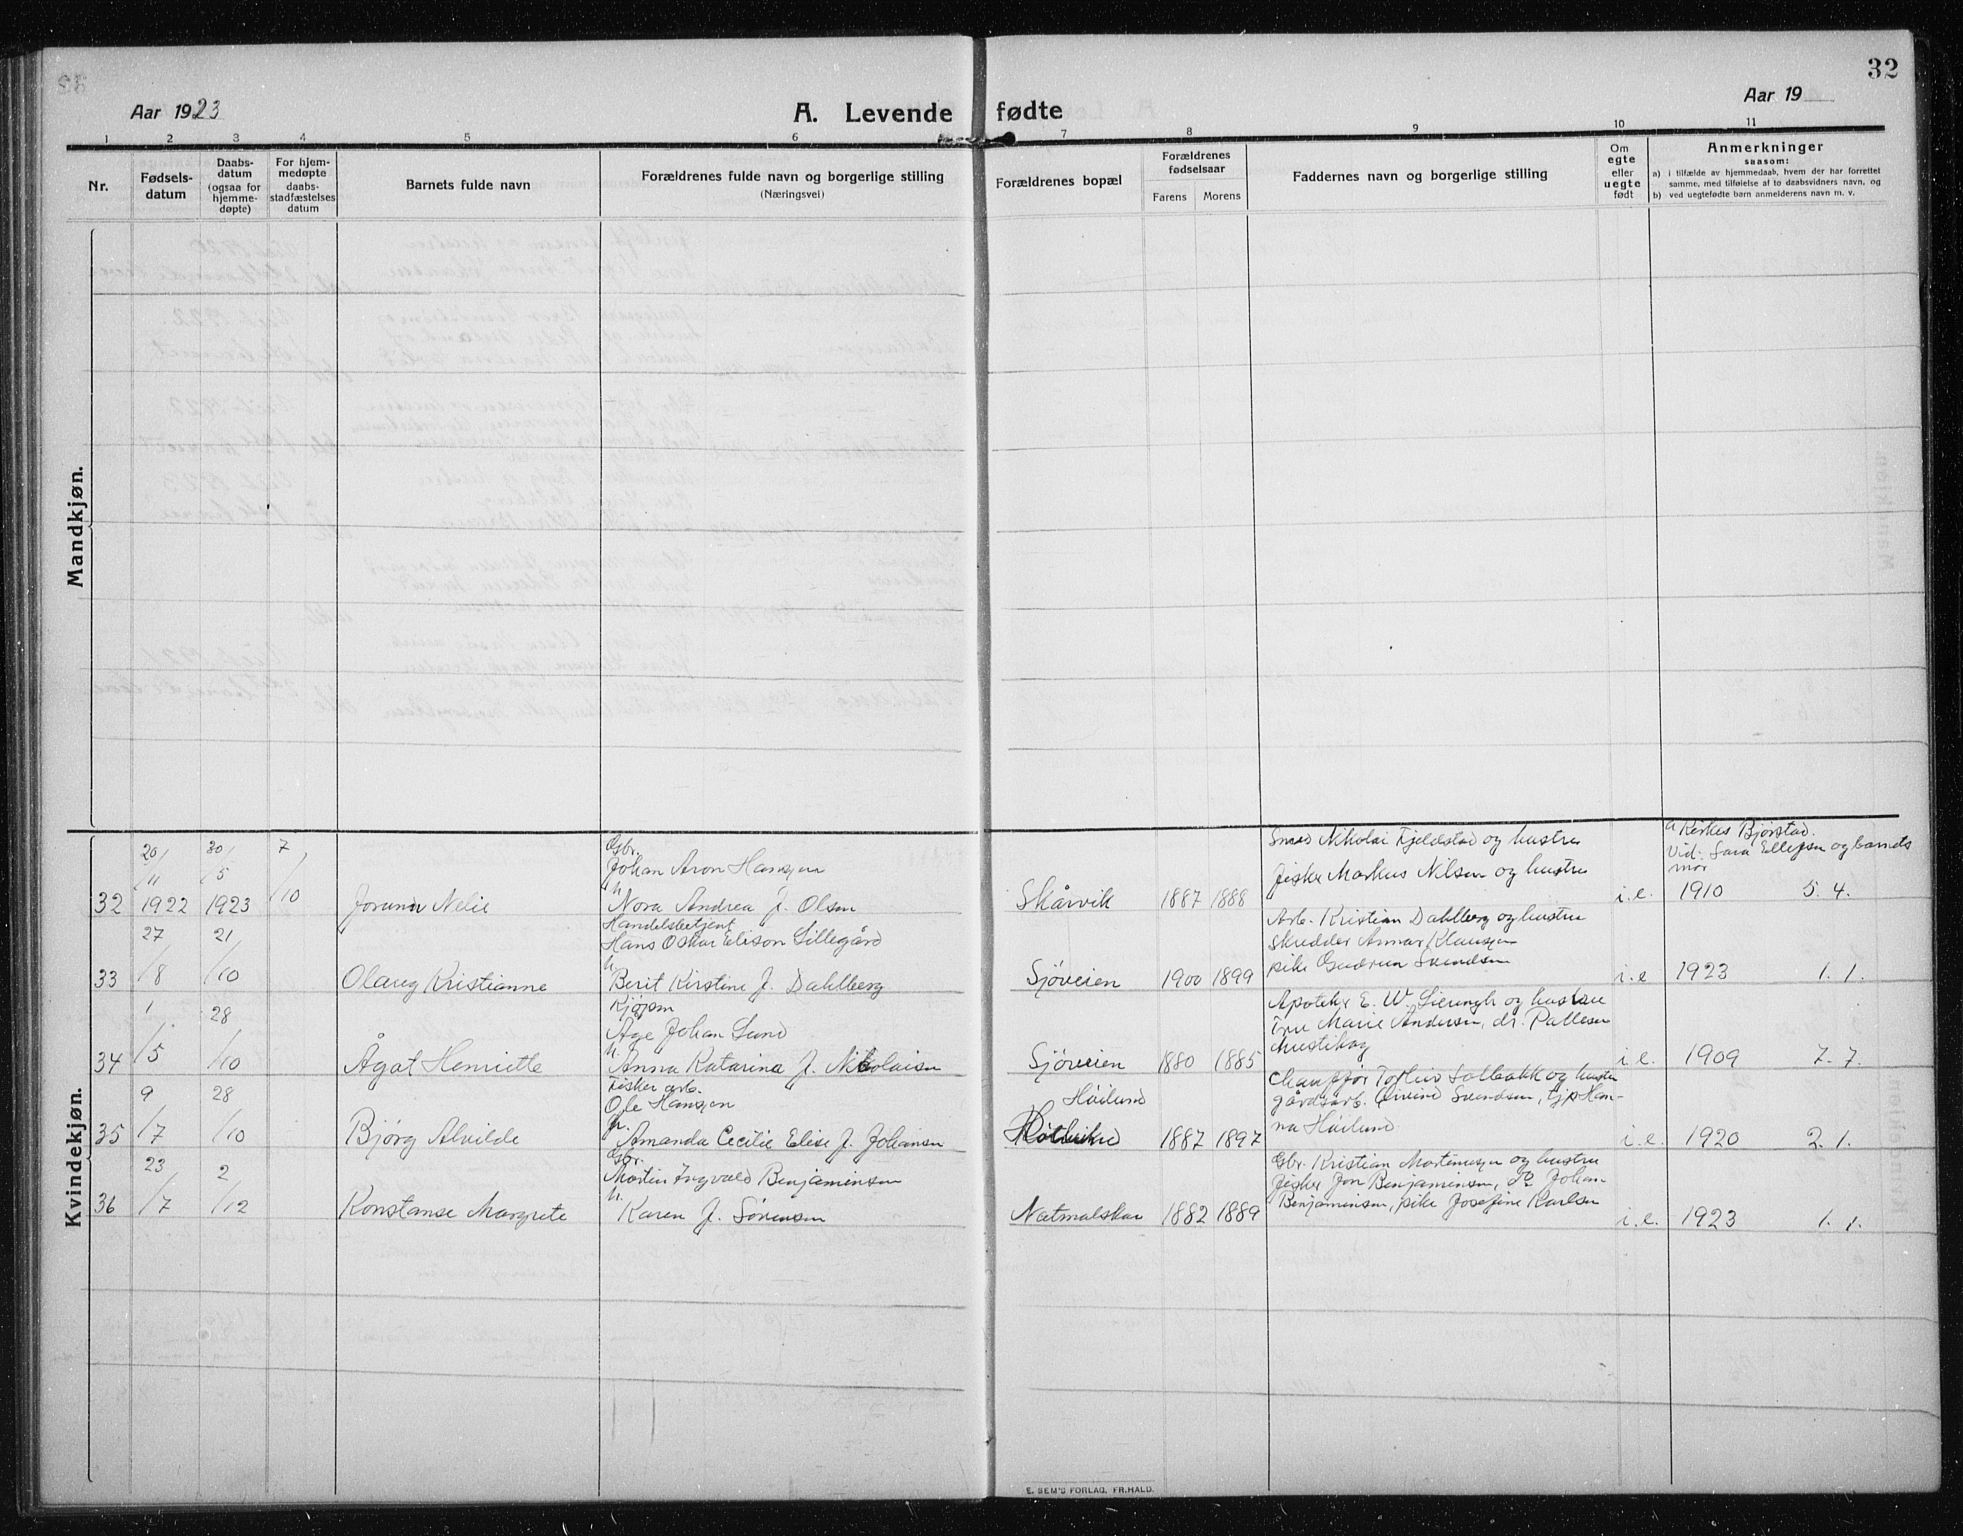 32
Aar 1923
A. Levende fødte
Aar 19
1 2 3 4 5 6 7 8 9 10 11
Nr.
Fødsels-
datum
Daabs-
datum
(ogsaa for
hjemme-
døpte)
For hjem-
medøpte
daabs-
stadfæstelses
datum
Barnets fulde navn
Forældrenes fulde navn og borgerlige stilling
(Næringsvei)
Forældrenes bopæl
Forældrenes
fødselsaar
Farens Morens
Faddernes navn og borgerlige stilling
Om
egte
eller
uegte
født
Anmerkninger
saasom:
a) i tilfælde av hjemmedaab, hvem der har forrettet
samme, med tilføielse af to daabsvidners navn, og
b) ved uegtefødte barn anmelderens navn m. v.
Mandkjøn.
Kvindekjøn.
32
20/11 1922
30/5 1923
7/10
Jorunn Nelie
Gbr.
Johan Aron Hansen
h.
Nora Andrea f. Olsen
Skårvik
1887 1888
Smed Nikolai Fjeldstad og hustru
fisker Markus Nilsen og hustru
i.e.
a Kirkes Bjørstad.
Vid: Sara Ellefsen og barnets
mor
1910 5. 4.
33
27/8
21/10
Olaug Kristianne
Handelsbetjent
Hans Oskar Elison Lillegård
h.
Berit Kirstine f. Dahlberg
Sjøveien
1900 1899
Arb. Kristian Dahlberg og hustru
skredder Annar Klausen
pike Gudrun Svendsen
i.e
1923 1. 1.
34
1/5
28/10
Ågot Henriette
Kjøpm
Åge Johan Lund
h.
Anna Katarina f. Nikolaisen
Sjøveien
1880 1885
Apoteker E. W. og hustru
Marie Andersen, dr. Pallesen
i.e.
1909 7. 7.
35
9/7
28/10
Bjørg Alvilde
Fisker arb.
Ole Hansen
h.
Amanda Cecilie Elise f. Johansen
Høilund
1887 1897
Chauffør Solbakk og hustru
gårdsarb. Eivind Svendsen, tjp Han-
na Høilund
i.e.
1920 2. 1.
36
23/7
2/12
Konstanse Margrete
Gbr.
Morten Ingvald Benjaminsen
h.
Karen f. Sørensen
Natmalskar
1882 1889
Gbr. Kristian Mortensen og hustru
fisker Jon Benjaminsen, do Johan
Benjaminsen, pike Josefine Karlsen
i.e.
1923 1. 1.
E. SEM'S FORLAG, FR.HALD.